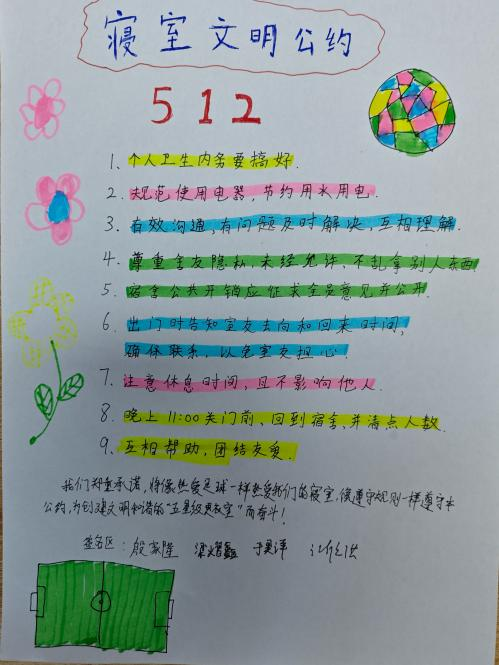 寝室文明公约
512
1、个人卫生内务要搞好.
2、规范使用电器,节约用水用电.
3、有效沟通,有问题及时解决,互相理解.
4、尊重舍友隐私,未经允许、不乱拿别人东西
5、宿舍公共开销应征求全员意见并公开.
6、出门时告知室友去向和回来时间,
确保联系,以免室友担心!
7、注意休息时间,且不影响他人.
8、晚上11:00关门前、回到宿舍、并清点人数.
9、互相帮助,团结友爱.
我们郑重承诺,将像热爱足球一样热爱我们的寝室,像遵守规则一样遵守本
公约,为创建文明和谐的“五星级寝室”而奋斗!
签名区:殷家隆